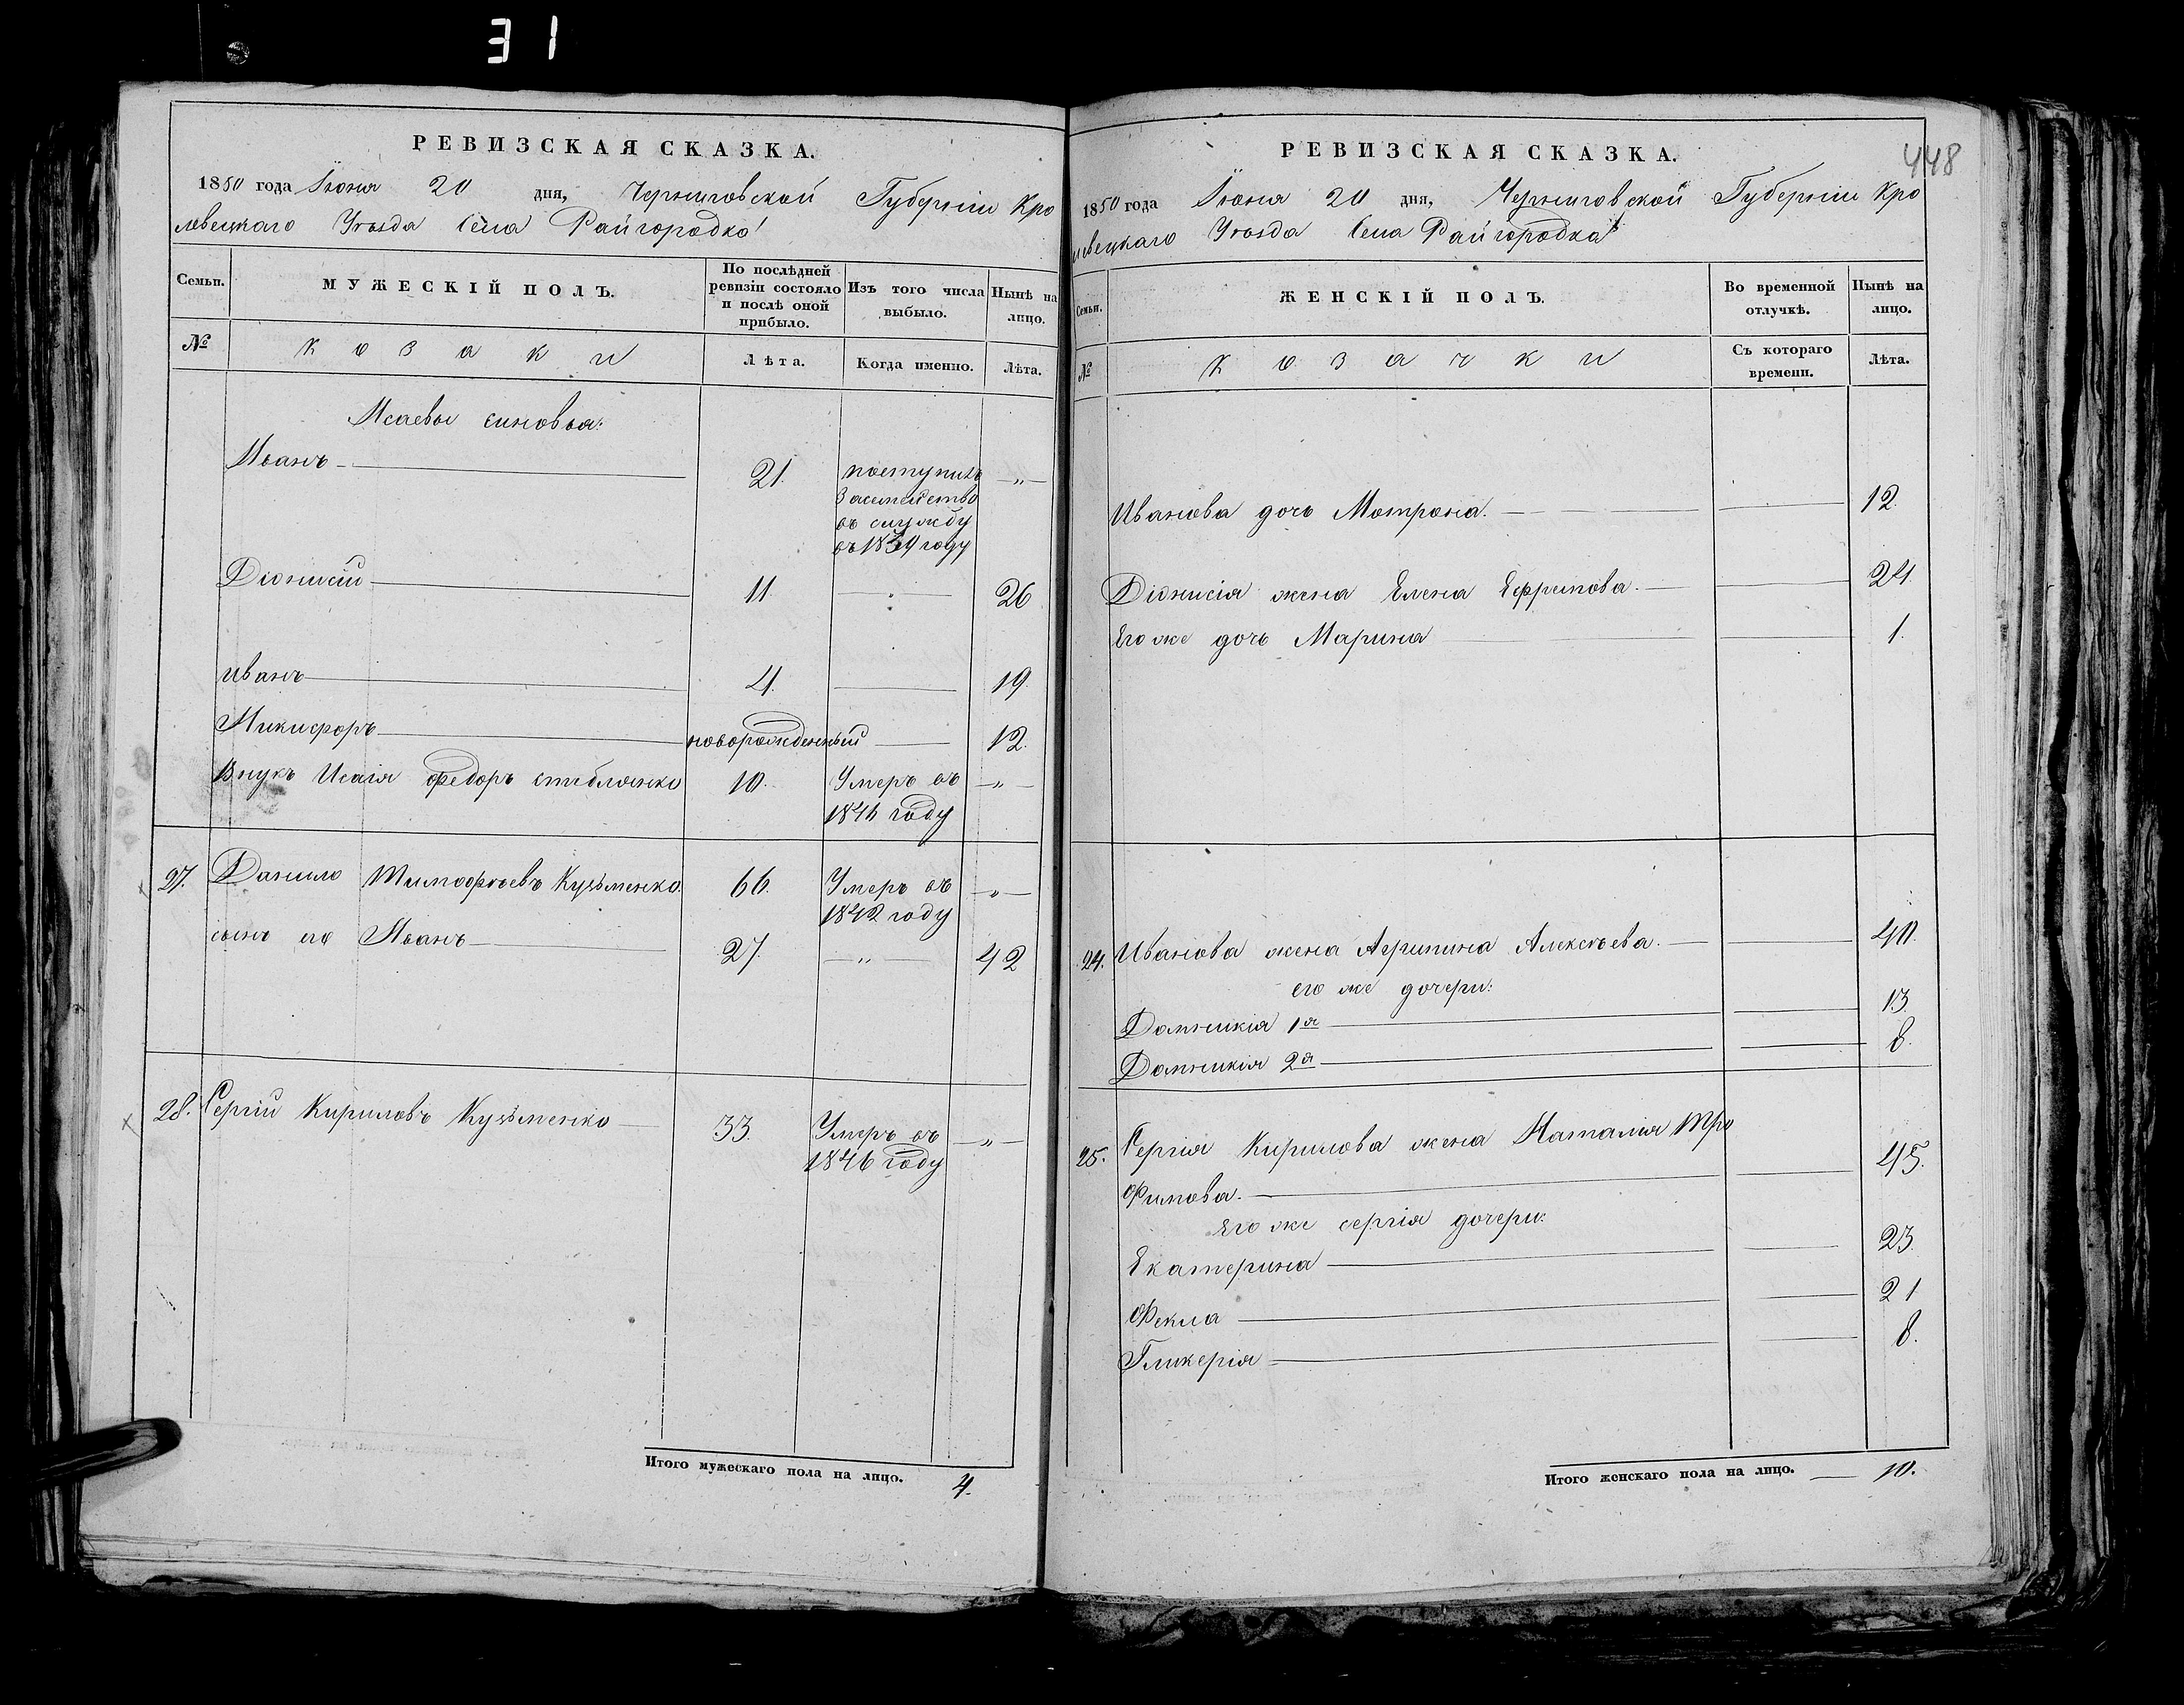 31
РЕВИЗСКАЯ СКАЗКА.
1850 года Іюня 20 дня, Черниговской Губерніи Кро
левецкаго Уѣзда Села Райгородка
Семьи.
МУЖЕСКІЙ ПОЛЪ.
По послѣдней ревизіи состояло и послѣ оной прибыло.
Изъ того числа выбыло.
Нынѣ на лицо.
№
Козаки
Лѣта.
Когда именно.
Лѣта.
Исаевы синовья:
Иванъ 21. поступилъ
за семейство
въ службу
въ 1839 году
—„—
Діонисій 11. 26
Иванъ 4. 19
Никифоръ новорожденный 12.
Внукъ Исаія Федоръ 10. Умеръ въ —„—
1846 году
27. Данило Тимофѣевъ Кузьменко. 66. Умеръ въ —„—
1842 году
сынъ его Иванъ 27. —„— 42
28. Сергій Кириловъ Кузьменко 33. Умеръ въ —„—
1846 году
Итого мужескаго пола на лицо. 4.
448
РЕВИЗСКАЯ СКАЗКА.
1850 года Іюня 20 дня, Черниговской Губерніи Кро
левецкаго Уѣзда Села Райгородка
Семьи.
ЖЕНСКІЙ ПОЛЪ.
Во временной отлучкѣ.
Нынѣ на лицо.
№
Козачки
Съ котораго времени.
Лѣта.
Иванова дочь Мотрона. 12.
Діонисія жена Елена Ефремова. 24.
Его же дочь Марина 1.
24. Иванова жена Агрипина Алексѣева. 40.
его же дочери:
Домникія 1я 13.
Домникія 2я 8.
25. Сергія Кирилова жена Наталія Тро
фимова. 45.
Его же сергія дочери:
Екатерина 23.
Фекла 21
Гликерія 8.
Итого женскаго пола на лицо. 10.